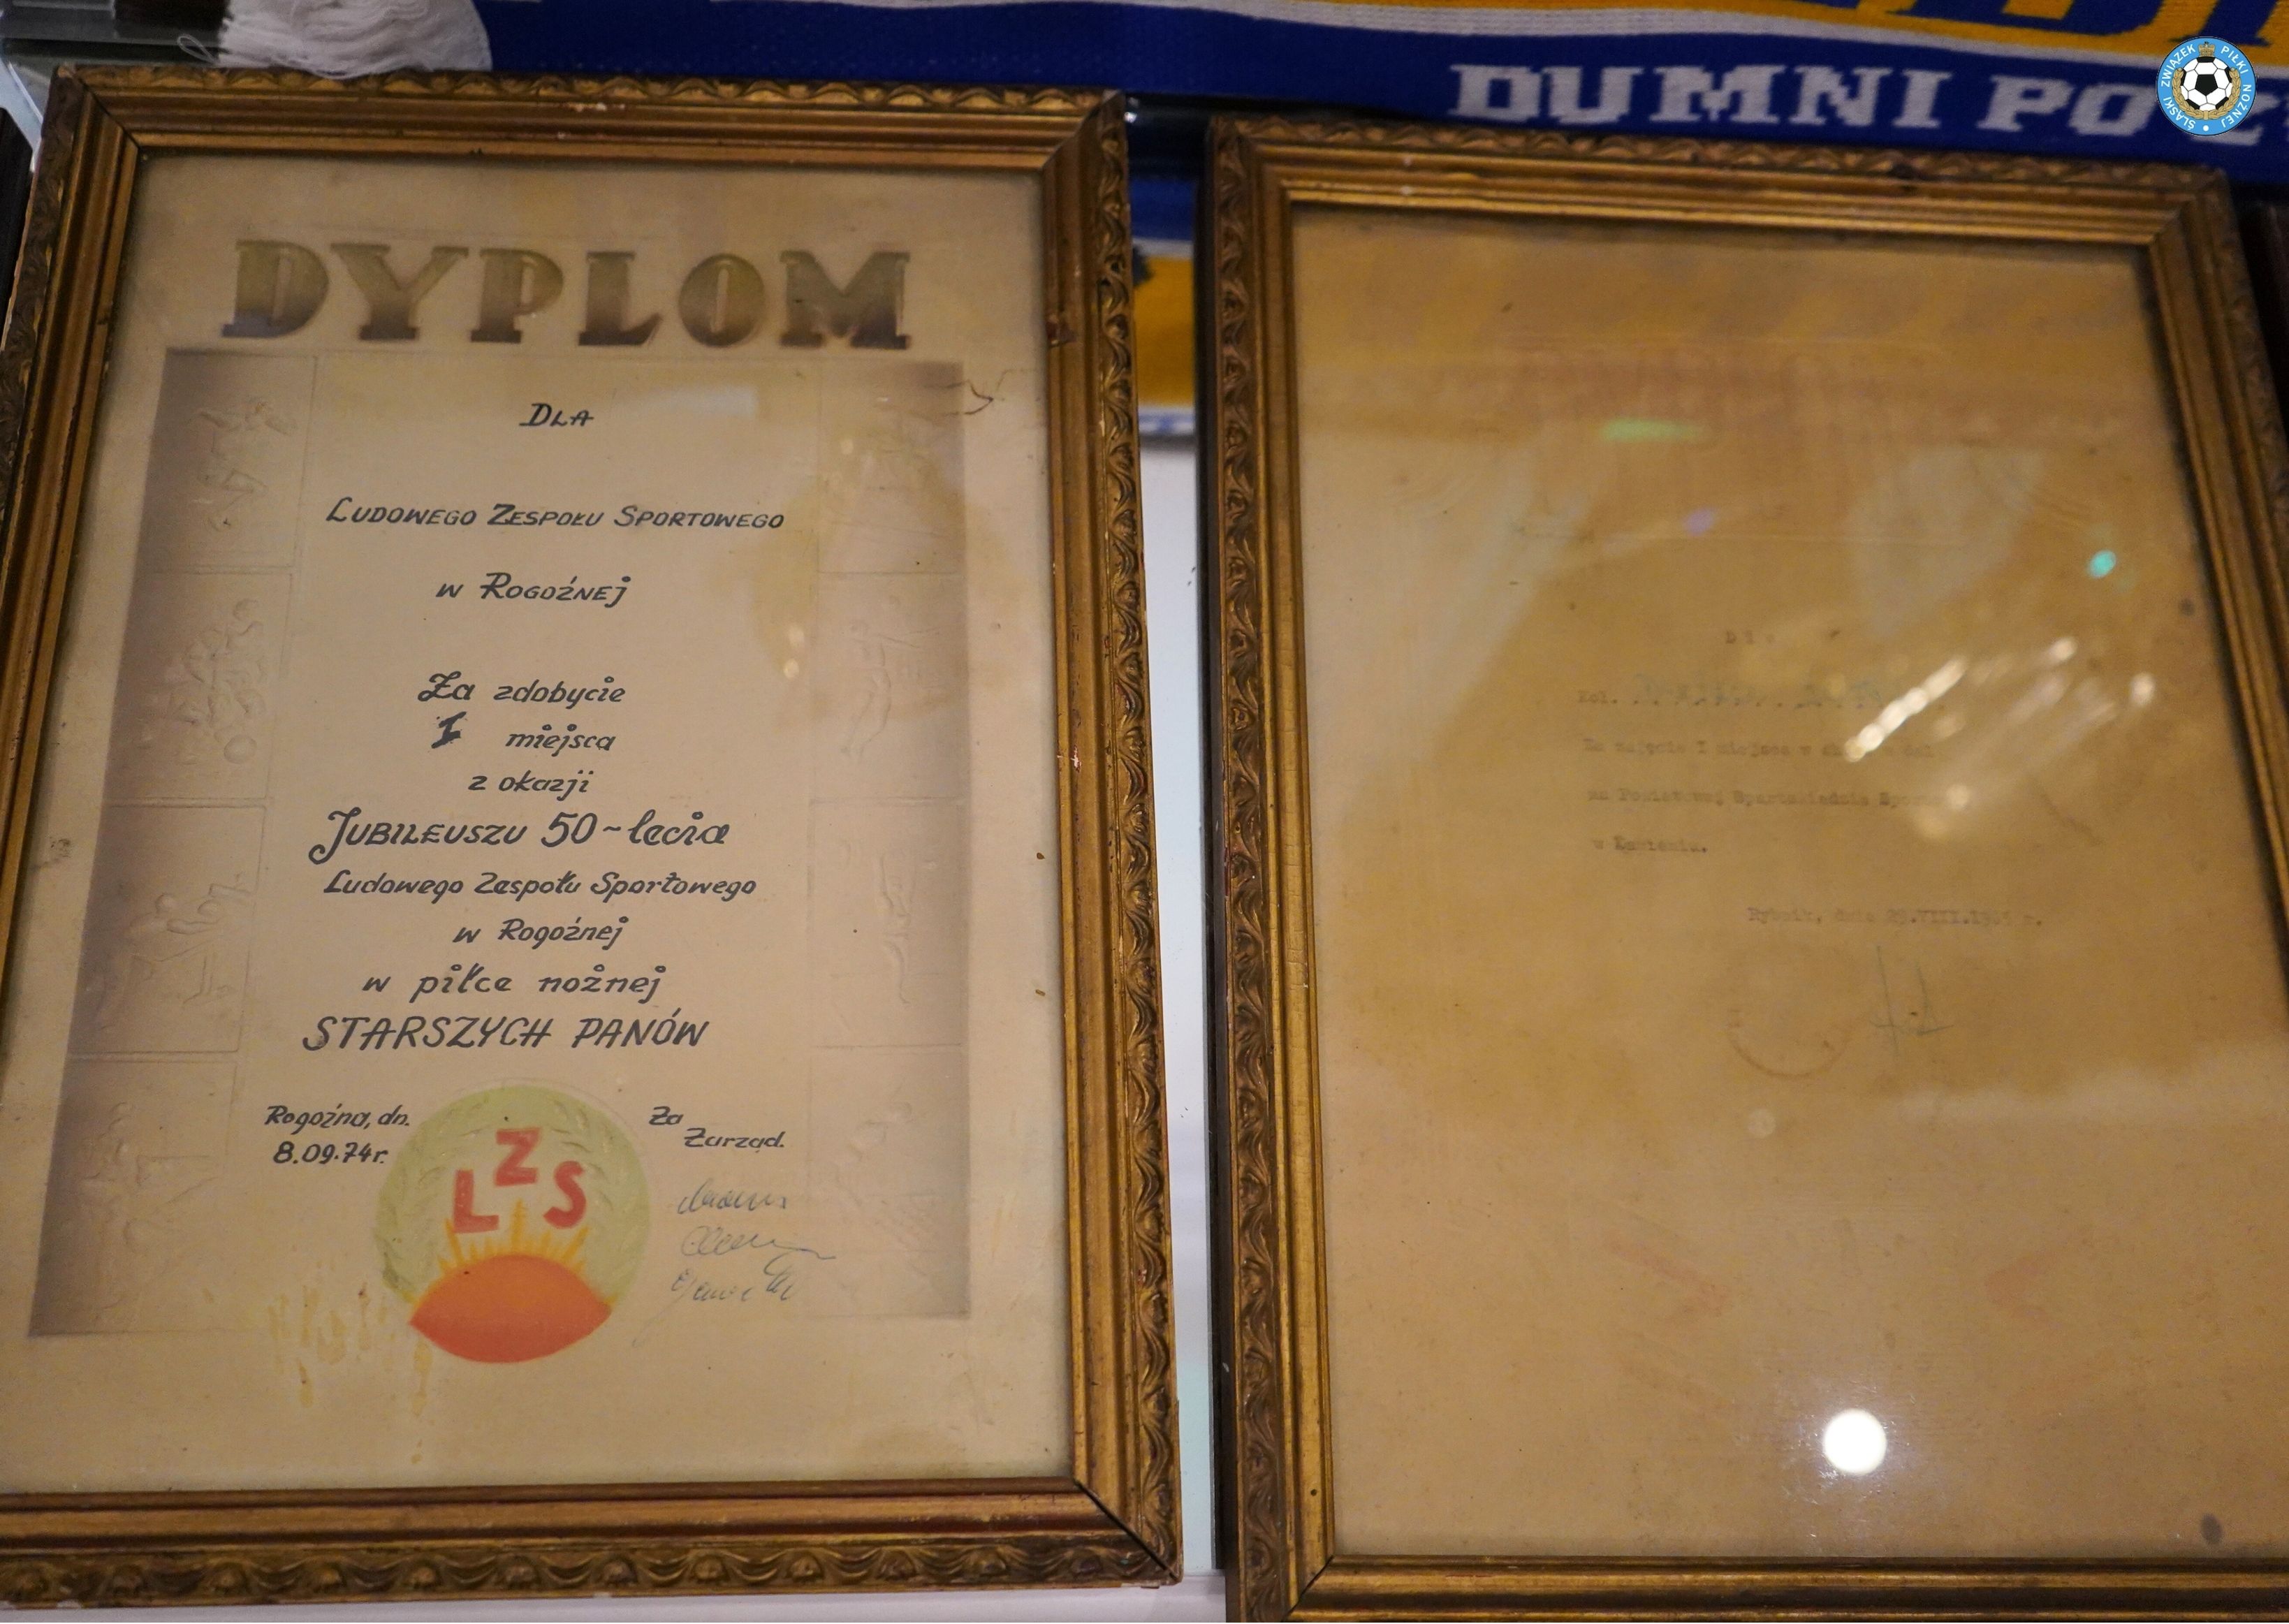 DUMNI PO
ŚLĄSKI ZWIĄZEK PIŁKI NOŻNEJ
DYPLOM
DLA
LUDOWEGO ZESPOŁU SPORTOWEGO
w ROGOŹNEJ
Za zdobycie
I miejsca
z okazji
JUBILEUSZU 50-lecia
Ludowego Zespołu Sportowego
w Rogoźnej
w piłce nożnej
STARSZYCH PANÓW
Rogoźna, dn.
8.09.74r.
Za
Zarząd.
LZS
Dla
Kol.
Za zajęcie I miejsca w
na Powiatowej Spartakiadzie
w Kamieniu.
Rybnik, dnia 29.VIII. r.